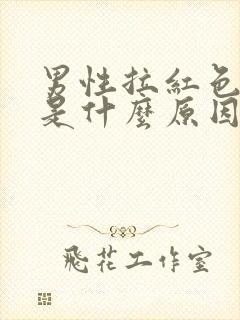 男性拉紅色
是什麼原因
飛花工作室